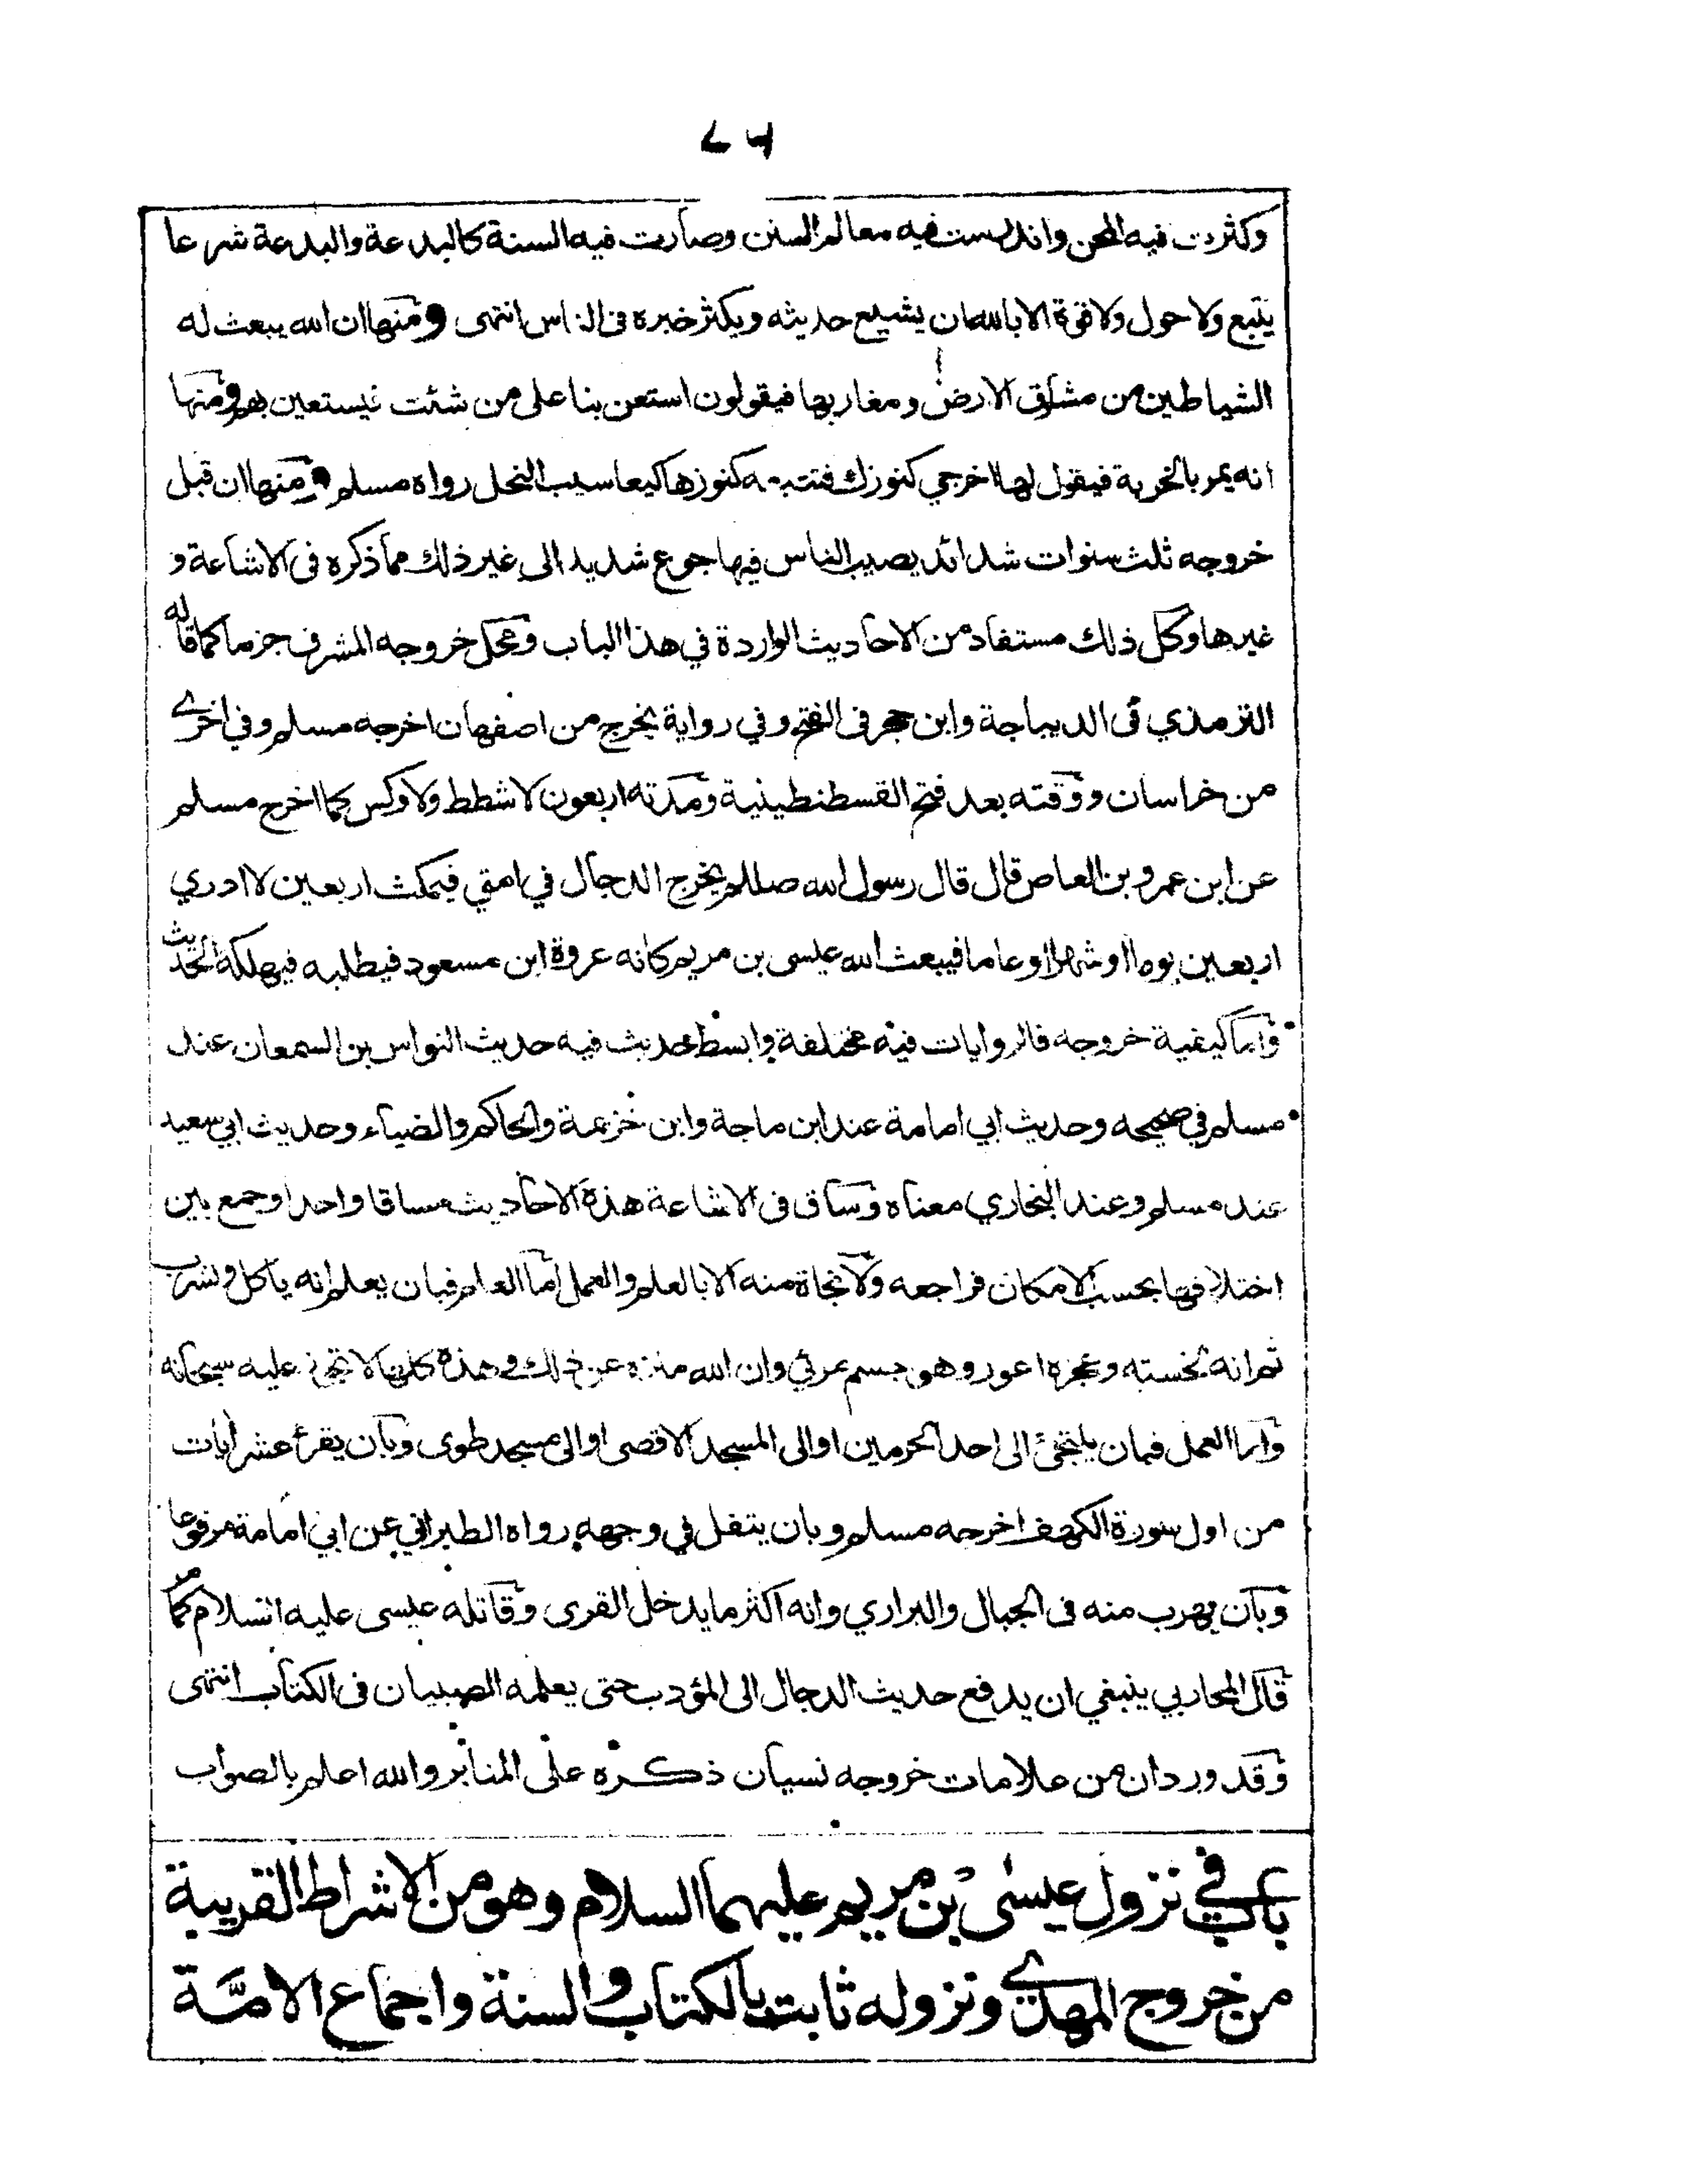 وكثرت فيه المحن واندرست فيه معالم السنن وصارت فيه السنة كالبدعة والبدعة شرعا
يتبع ولا حول ولا قوة الا بالله ان يشيع حديثه ويكثر خبره فى الناس انتهى ومنها ان الله يبعث له
الشياطين من مشارق الارض ومغاربها فيقولون استعن بنا على من شئت فيستعين بهم ومنها
انه يمر بالخربة فيقول لها اخرجي كنوزك فتتبعه كنوزها كيعاسيب النحل رواه مسلم ومنها ان قبل
خروجه ثلث سنوات شدائد يصيب الناس فيها جوع شديد الى غير ذلك مما ذكره فى الاشاعة و
غيرها وكل ذلك مستفاد من الاحاديث الواردة في هذا الباب ومحل خروجه المشرق جزما كما قاله
الترمذي فى الديباجة وابن حجر فى الفتح وفي رواية يخرج من اصفهان اخرجه مسلم وفي اخرے
من خراسان ووقته بعد فتح القسطنطينية ومدته اربعون لا شطط ولا وكس كما اخرج مسلم
عن ابن عمرو بن العاص قال قال رسول الله صللم يخرج الدجال في امتي فيمكث اربعين لا ادري
اربعين يوما او شهرا او عاما فيبعث الله عيسى بن مريم كانه عروة ابن مسعود فيطلبه فيهلكه الحديث
واما كيفية خروجه فالروايات فيه مختلفة وابسط حديث فيه حديث النواس بن السمعان عند
مسلم في صحيحه وحديث ابي امامة عند ابن ماجة وابن خزيمة والحاكم والضياء وحديث ابي سعيد
عند مسلم وعند البخاري معناه وساق فى الاشاعة هذه الاحاديث مساقا واحدا وجمع بين
اختلافها بحسب الامكان فراجعه ولا نجاة منه الا بالعلم والعمل اما العلم فبان يعلم انه ياكل ويشرب
ثم انه لخسته وعجزه اعور وهو جسم مرئي وان الله منزه عن ذلك وهذه كلها لا تجوز عليه سبحانه
واما العمل فبان يلتجئ الى احد الحرمين او الى المسجد الاقصى او الى مسجد طوى وبان يقرأ عشر ايات
من اول سورة الكهف اخرجه مسلم وبان يتفل في وجهه رواه الطبراني عن ابي امامة مرفوعا
وبان يهرب منه فى الجبال والبراري وانه اكثر ما يدخل القرى وقاتله عيسى عليه السلام كما مر
قال المحاربي ينبغي ان يدفع حديث الدجال الى المؤدب حتى يعلمه الصبيان فى الكتاب انتهى
وقد ورد ان من علامات خروجه نسيان ذكره على المنابر والله اعلم بالصواب
باب في نزول عيسى بن مريم عليهما السلام وهو من الاشراط القريبة
من خروج المهدي ونزوله ثابت بالكتاب والسنة واجماع الامة